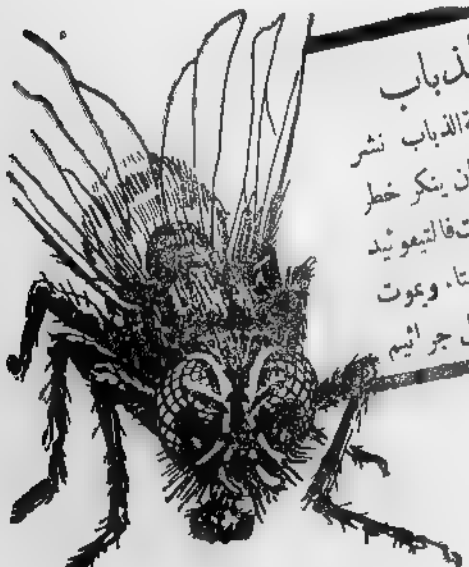 لذباب
ةالذباب نشر
ن ينكر خطر
فالتيفوئيد
ويموت
جراثيم